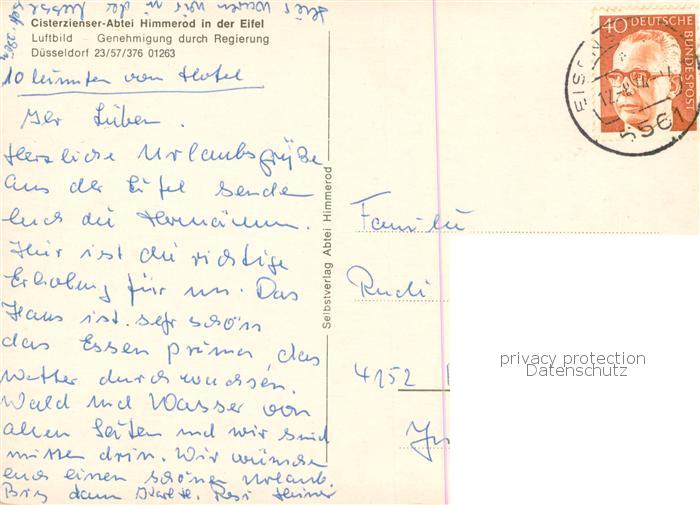 Cisterzienser-Abtei Himmerod in der Eifel
Luftbild – Genehmigung durch Regierung
Düsseldorf 23/57/376 01263
10 Minuten vom Hotel
Ihr Lieben.
Herzliche Urlaubsgrüße
aus der Eifel senden
Euch die
Hier ist die richtige
Erholung für uns. Das
Haus ist sehr schön
das Essen prima, das
Wetter durchwachsen.
Wald und Wasser von
allen Seiten und wir sind
mitten drin. Wir wünschen
euch einen schönen Urlaub.
Bis dann
Selbstverlag Abtei Himmerod
40 DEUTSCHE BUNDESPOST
5561
Familie
Rudi
4152
privacy protection
Datenschutz